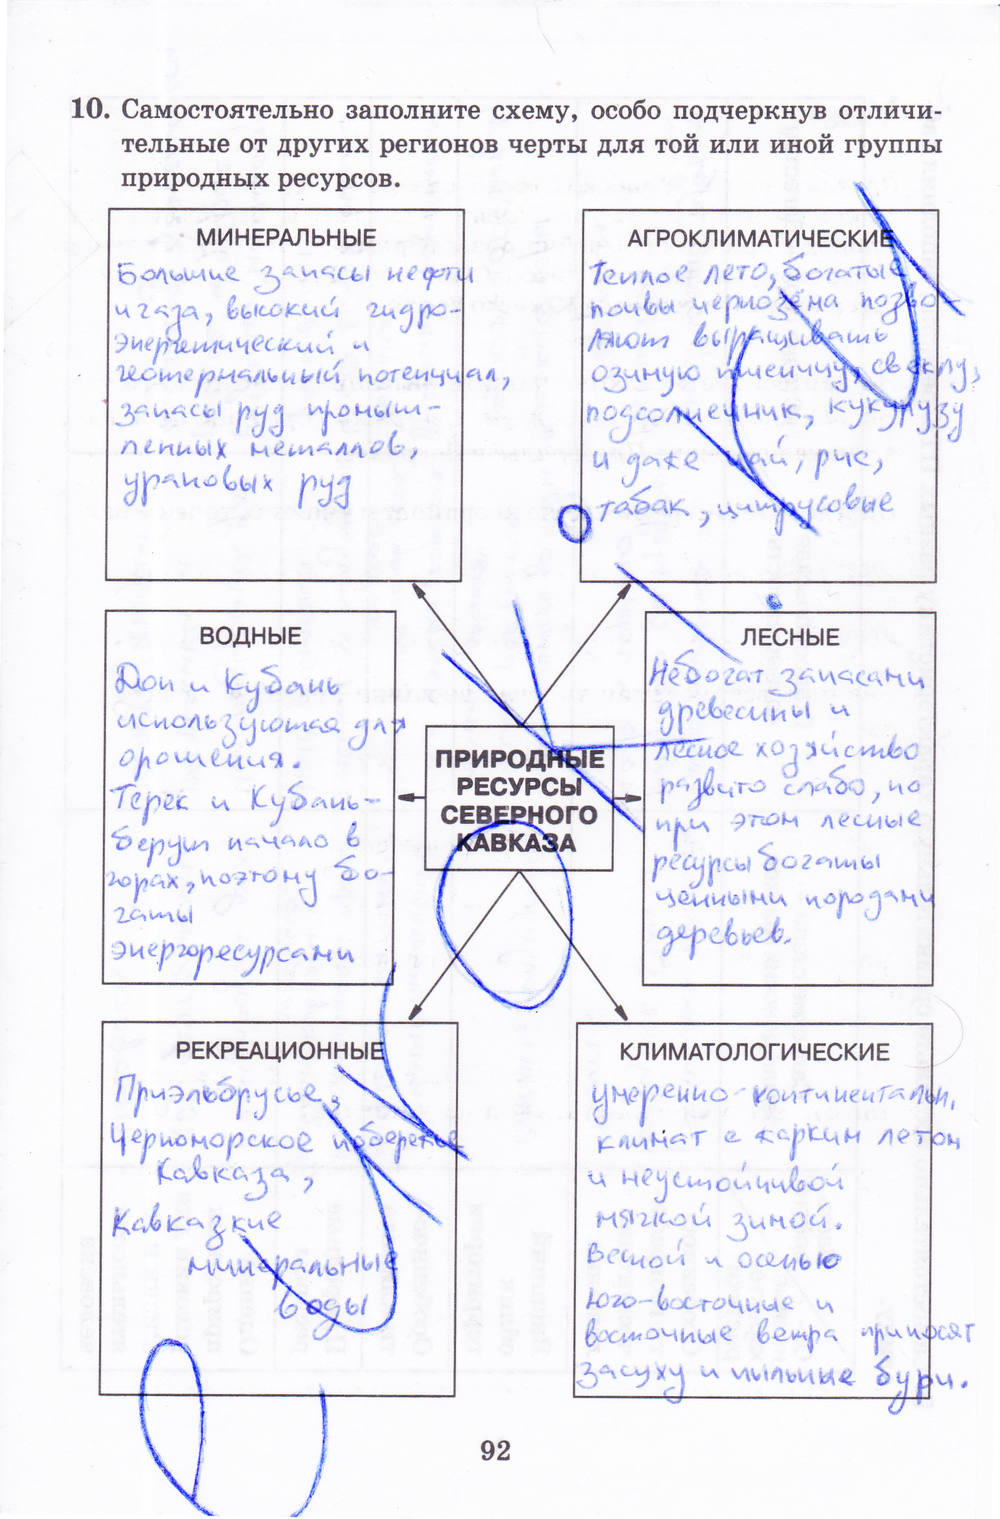 10. Самостоятельно заполните схему, особо подчеркнув отличи-
тельные от других регионов черты для той или иной группы
природных ресурсов.
МИНЕРАЛЬНЫЕ
Большие запасы нефти
и газа, высокий гидро-
энергетический и
геотермальный потенциал,
запасы руд промыш-
ленных металлов,
урановых руд
АГРОКЛИМАТИЧЕСКИЕ
Теплое лето, богатые
почвы чернозёма позво-
ляют выращивать
озимую пшеницу, свеклу,
подсолнечник, кукурузу
и даже чай, рис,
табак, цитрусовые
ВОДНЫЕ
Дон и Кубань
используются для
орошения.
Терек и Кубань-
берут начало в
горах, поэтому бо-
гаты
энергоресурсами
ПРИРОДНЫЕ
РЕСУРСЫ
СЕВЕРНОГО
КАВКАЗА
ЛЕСНЫЕ
Небогат запасами
древесины и
лесное хозяйство
развито слабо, но
при этом лесные
ресурсы богаты
ценными породами
деревьев.
РЕКРЕАЦИОННЫЕ
Приэльбрусье,
Черноморское побережье
Кавказа,
Кавказкие
минеральные
воды
КЛИМАТОЛОГИЧЕСКИЕ
умеренно-континентальн.
климат с жарким летом
и неустойчивой
мягкой зимой.
Весной и осенью
юго-восточные и
восточные ветра приносят
засуху и пыльные бури.
92